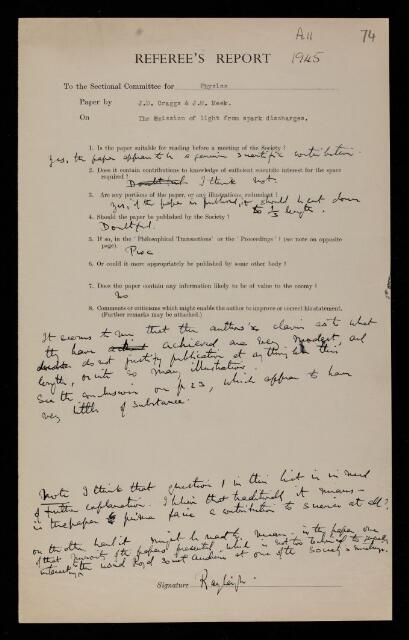 A11
74
REFEREE'S REPORT 1945
To the Sectional Committee for Physics
Paper by J.D. Craggs & J.M. Meek.
On The Emission of light from spark discharges.
1. Is the paper suitable for reading before a meeting of the Society?
Yes, the paper appears to be a genuine scientific contribution.
2. Does it contain contributions to knowledge of sufficient scientific interest for the space
required? Doubtful I think not.
3. Are any portions of the paper, or any illustrations, redundant?
Yes, if the paper is published, it should be cut down
to 1/3 length.
4. Should the paper be published by the Society?
Doubtful.
5. If so, in the 'Philosophical Transactions' or the 'Proceedings'? (see note on opposite
page). Proc
6. Or could it more appropriately be published by some other body?
7. Does the paper contain any information likely to be of value to the enemy?
No
8. Comments or criticisms which might enable the author to improve or correct his statement.
(Further remarks may be attached.)
It seems to me that the author's claims as to what
they have achieved are very modest, and
do not justify publication at anything like this
length, or with so many illustrations.
See the conclusions on p 23, which appear to have
very little of substance.
Note I think that question 1 in this list is in need
of further explanation. I believe that traditionally it means –
is the paper prima facie a contribution to science at all?
On the other hand it might be read to mean – is the paper one
of that minority of the papers presented which is not too technical to be
interesting to the usual Royal Society audience at one of the Society's meetings.
Signature Rayleigh.